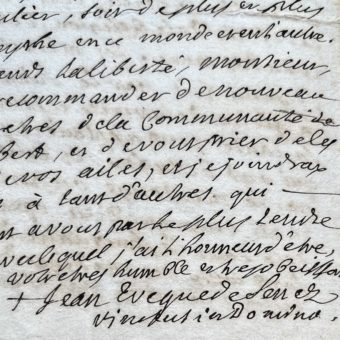 soit de plus en plus
en ce monde et en l'autre.
la liberté, monsieur,
recommander de nouveau
de la Communauté de
et de vous prier de les
vos ailes, et je joindrai
à tant d'autres qui
a vous par le plus tendre
avec lequel j'ai l'honneur d'être,
votre tres humble et tres obeissan
+ Jean Eveque de Senez
vinctus in Domino.